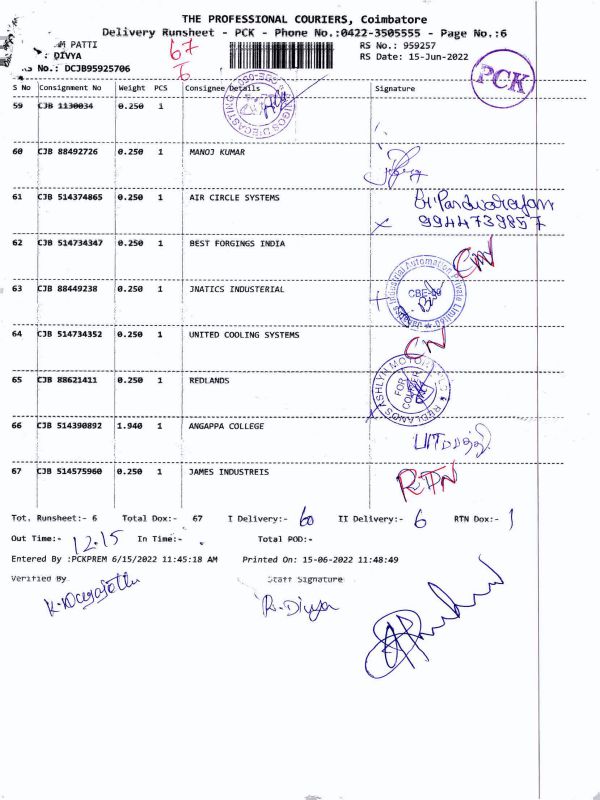 THE PROFESSIONAL COURIERS, Coimbatore
Delivery Runsheet - PCK - Phone No.:0422-3505555 - Page No.:6
PATTI
67
RS No.: 959257
: DIVYA
RS Date: 15-Jun-2022
PCK
RS No.: DCJB95925706
S No Consignment No Weight PCS Consignee Details Signature
59 CJB 1130034 0.250 1
60 CJB 88492726 0.250 1 MANOJ KUMAR
61 CJB 514374865 0.250 1 AIR CIRCLE SYSTEMS
9944739857
62 CJB 514734347 0.250 1 BEST FORGINGS INDIA
63 CJB 88449238 0.250 1 JNATICS INDUSTERIAL
Industrial Automation Private Limited
64 CJB 514734352 0.250 1 UNITED COOLING SYSTEMS
CN
65 CJB 88621411 0.250 1 REDLANDS
REDLANDS ASHLYN MOTORS
FOR
66 CJB 514390892 1.940 1 ANGAPPA COLLEGE
67 CJB 514575960 0.250 1 JAMES INDUSTREIS
RTN
Tot. Runsheet:- 6 Total Dox:- 67 I Delivery:- 60 II Delivery:- 6 RTN Dox:- 1
Out Time:- 12.15 In Time:- Total POD:-
Entered By :PCKPREM 6/15/2022 11:45:18 AM Printed On: 15-06-2022 11:48:49
Verified By Staff Signature
R. Divya